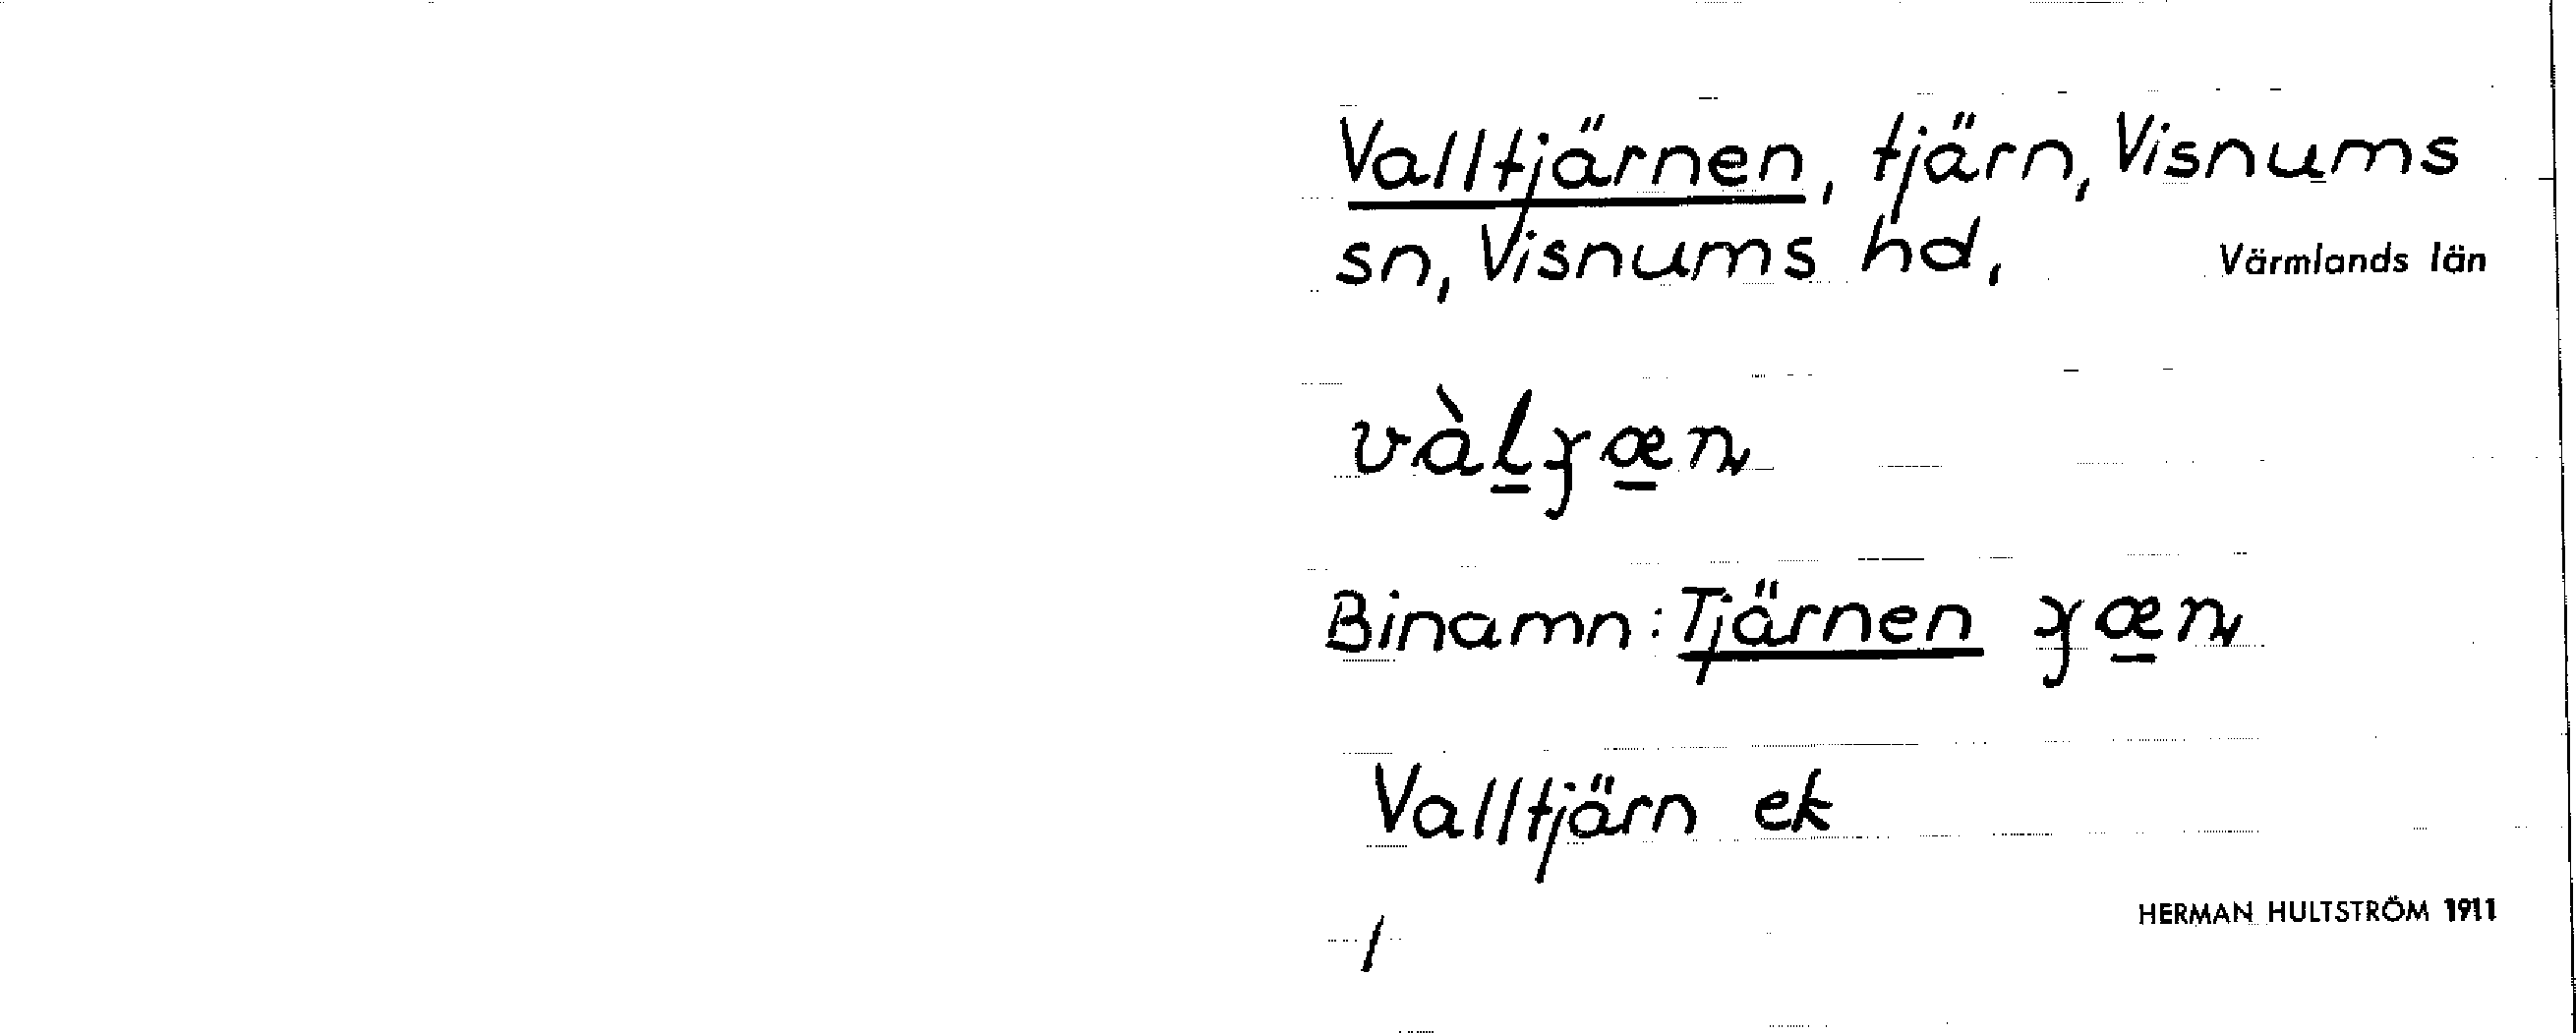 Valltjärnen, tjärn, Visnums
sn, Visnums hd, Värmlands län
Binamn: Tjärnen
Valltjärn ek
/
HERMAN HULTSTRÖM 1911